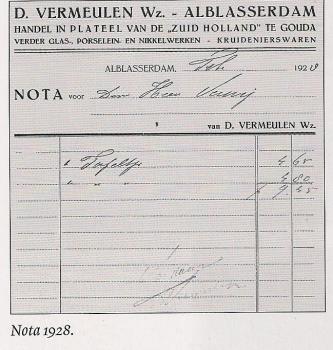 D. VERMEULEN Wz. - ALBLASSERDAM
HANDEL IN PLATEEL VAN DE „ZUID HOLLAND” TE GOUDA
VERDER GLAS-, PORSELEIN- EN NIKKELWERKEN - KRUIDENIERSWAREN
ALBLASSERDAM, 1928
NOTA voor Den Heer
van D. VERMEULEN Wz.
4 65
4 80
9.45
Nota 1928.